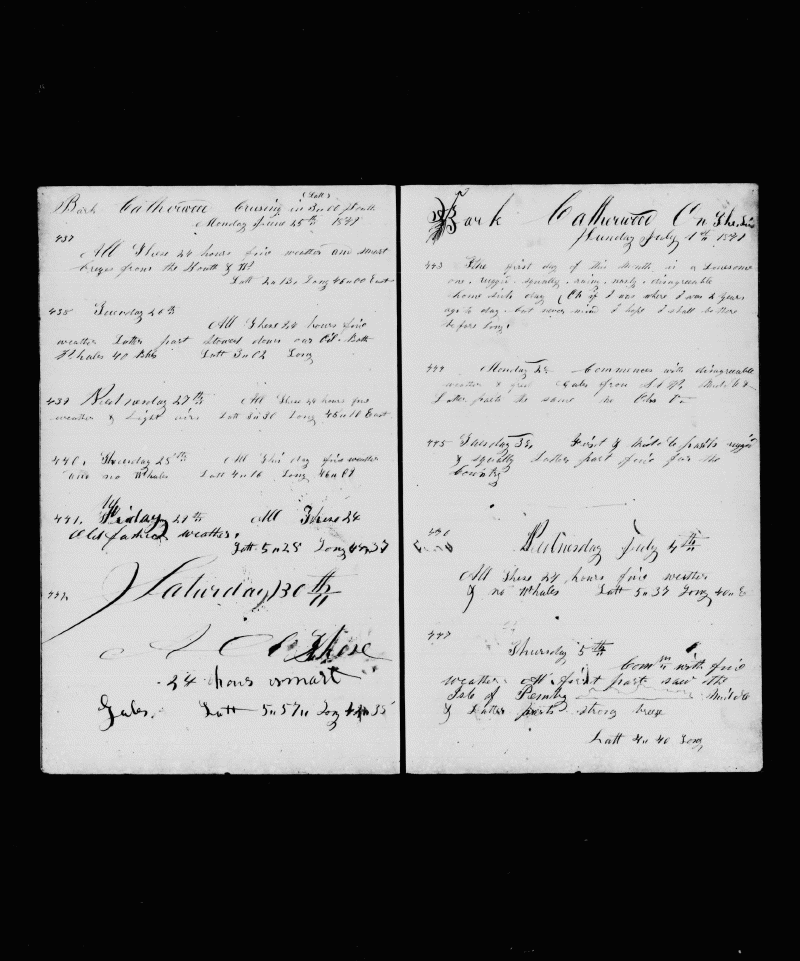 (Latt)
Bark Catherwood Crusing in 3..00 South
Monday June 25th 18
437
All These 24 hours fine weather and smart
brezes from the South & W
Latt 2..13 Long 46..00 East
438 Tuesday 26th
All These 24 hours fine
weather Latter part Stowed down our Oil. Both
Whales 40 Bbls Latt 3..02 Long
439 Wednesday 27th All These 24 hours fine
weather & Light airs Latt 3..30 Long 45..10 East
440. Thursday 28th All This day fine weather
and no Whales Latt 4..16 Long
441. Friday 29th All These 24
old fashion weather.
Latt 5..28 Long
442 Saturday 30th
These
24 hours smart
Gales. Latt 5..57 Long
Bark Catherwood On The
Sunday July 1st 18
443 The first day of This Month is a Lonesome
one, ruggid squaly, rainy, nasty, disagreable
home sick day (Oh if I was where I was 2 years
ago to day. but never mind I hope I shall be there
before long.
444 Monday 2d Commences with disagreable
weather & Gales from
Latter parts the same no Obs
445 Tuesday 3d First & Middle parts ruggid
& squally Latter part fine for the
Country
446 Wednesday July 4th
All These 24 hours fine weather
& no Whales Latt 5..37 Long 40..
447
Thursday 5th
Comm with fine
weather. At first part saw the
Isle of Pemby Middle
& Latter parts strong breze
Latt 4..40 Long